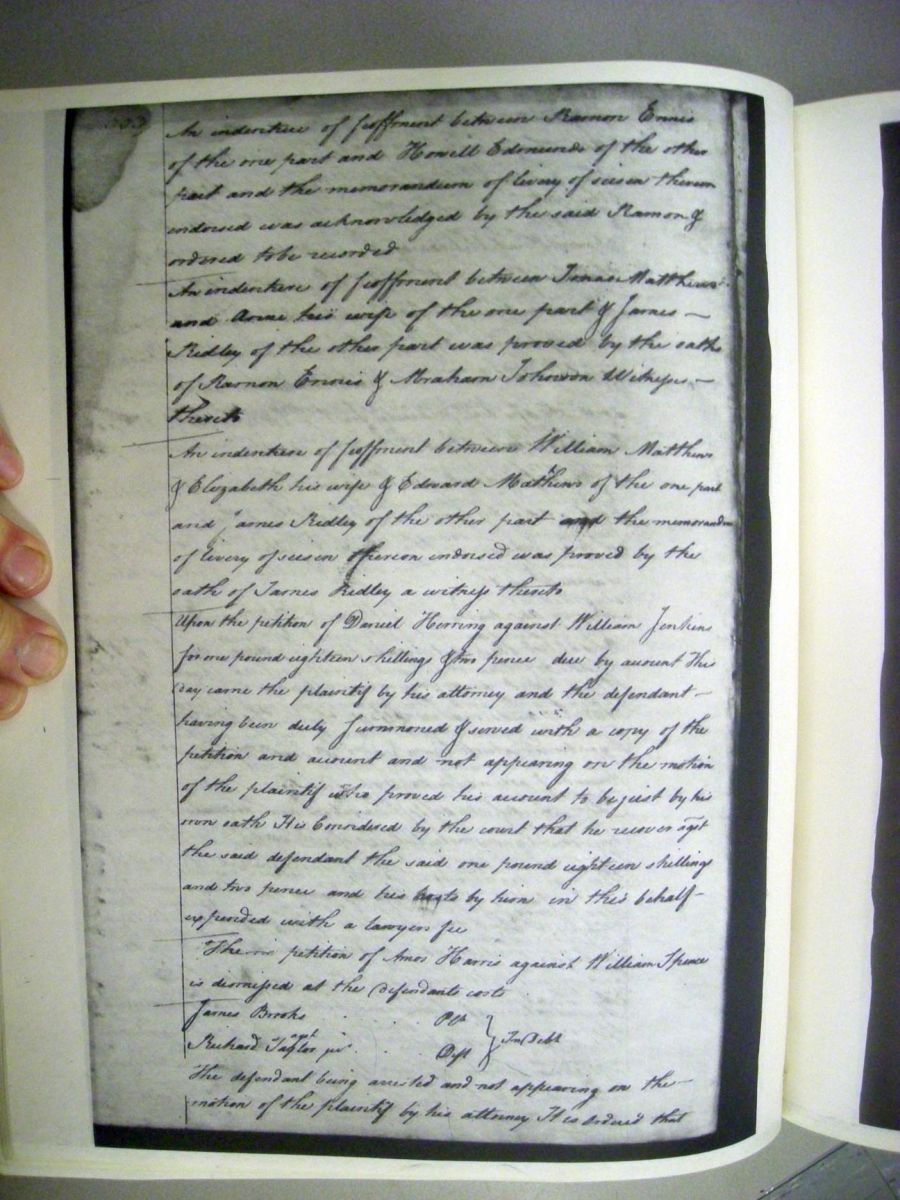 An indenture of feoffment between Ramon Ennis
of the one part and Howell Edmunds of the other
part and the memorandum of livery of seisen thereon
endorsed was acknowledged by the said Ramon &
ordered to be recorded
An indenture of feoffment between Matthews
and his wife of the one part & James —
Ridley of the other part was proved by the oaths
of Ramon Ennis & Abraham Johnson Witnesses —
thereto
An indenture of feoffment between William Matthews
& Elizabeth his wife & Edward Mathews of the one part
and James Ridley of the other part and the memorandum
of livery of seisen thereon endorsed was proved by the
oath of James Ridley a witness thereto
Upon the petition of Daniel Herring against William Jenkins
for one pound eighteen shillings & two pence due by account This
day came the plaintif by his attorney and the defendant —
having been duly summoned & served with a copy of the
petition and account and not appearing on the motion
of the plaintif who proved his account to be just by his
own oath It is Considered by the court that he recover agst
the said defendant the said one pound eighteen shillings
and two pence and his costs by him in this behalf —
expended with a lawyers fee
The petition of Amos Harris against William Spence
is dismissed at the defendants costs
James Brooks . . . Plt } In Debt
agst
Richard Taylor jur . . . Deft
The defendant being arrested and not appearing on the —
motion of the plaintif by his attorney It is Ordered that